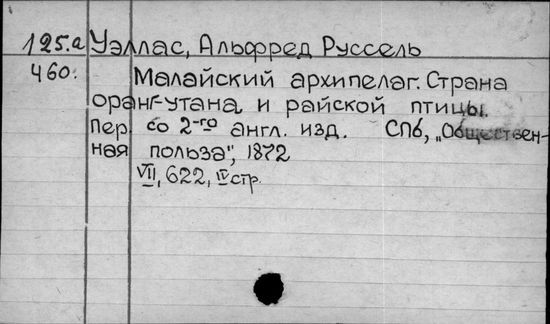 125.а Уэллас, Альфред Руссель
460. Малайский архипелаг. Страна
оранг-утана и райской птицы.
Пер. со 2-го англ. изд. СПб, „Обществен-
ная польза", 1872
VII, 622, IV стр.